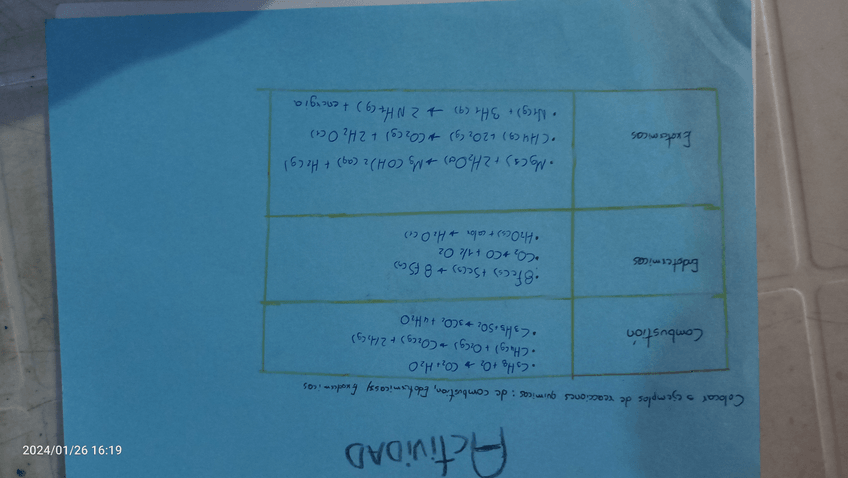 ACTIVIDAD
Colocar 3 ejemplos de reacciones quimicas: de combustion, Edotermicas y Exotermicas
Combustion
• C3H8 + O2 → CO2 + H2O
• CH4(g) + O2(g) → CO2(g) + 2H2(g)
• C3H8 + SO2 → 3CO2 + 4H2O
Endotermicas
• 8Fe(s) + S8(s) → 8FS(s)
• CO2 → CO + 1/2 O2
• H2O(s) + calor → H2O(l)
Exotermicas
• Mg(s) + 2H2O(l) → Mg(OH)2(aq) + H2(g)
• CH4(g) + 2O2(g) → CO2(g) + 2H2O(l)
• N2(g) + 3H2(g) → 2NH3(g) + energia
2024/01/26 16:19